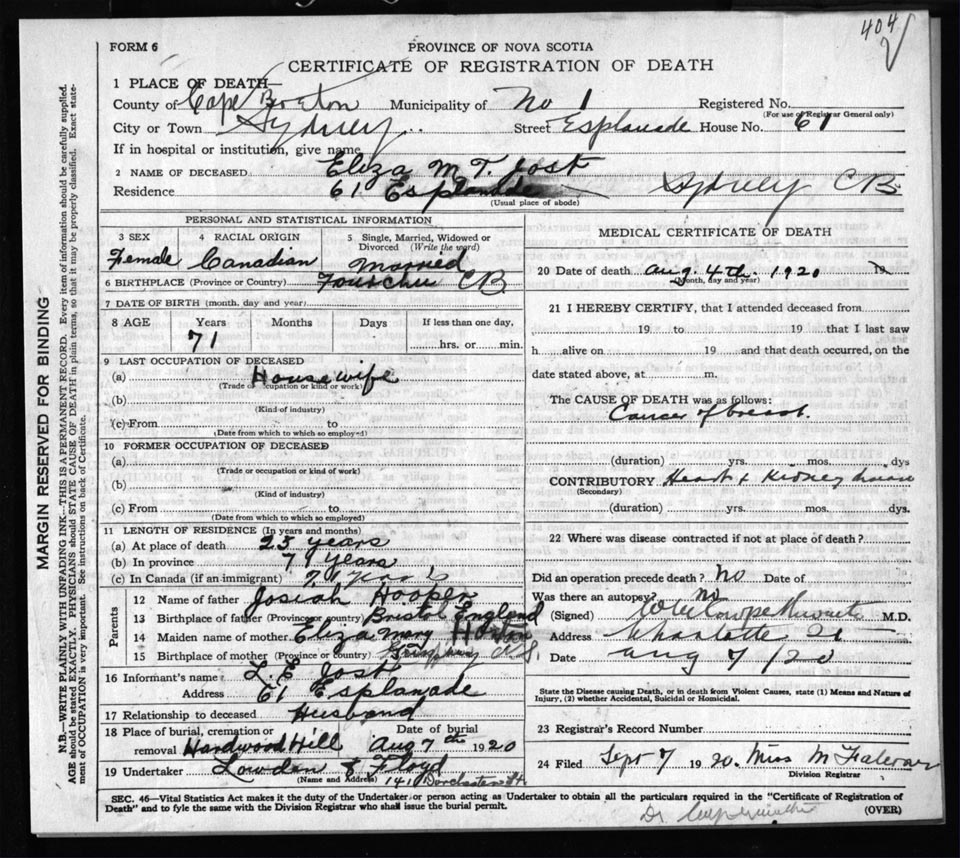 404
FORM 6
PROVINCE OF NOVA SCOTIA
CERTIFICATE OF REGISTRATION OF DEATH
1 PLACE OF DEATH
County of Cape Breton Municipality of No 1 Registered No.
(For use of Registrar General only)
City or Town Sydney Street Esplanade House No. 61
If in hospital or institution, give name
2 NAME OF DECEASED Eliza M T. Jost
Residence 61 Esplanade Sydney CB
(Usual place of abode)
PERSONAL AND STATISTICAL INFORMATION
3 SEX 4 RACIAL ORIGIN 5 Single, Married, Widowed or Divorced (Write the word)
Female Canadian Married
6 BIRTHPLACE (Province or Country) Fourchu CB
7 DATE OF BIRTH (month, day and year)
8 AGE Years Months Days If less than one day,
71 hrs. or min.
9 LAST OCCUPATION OF DECEASED
(a) Housewife
(Trade occupation or kind or work)
(b)
(Kind of industry)
(c) From to
(Date from which to which so employed)
10 FORMER OCCUPATION OF DECEASED
(a)
(Trade or occupation or kind of work)
(b)
(Kind of industry)
(c) From to
(Date from which to which so employed)
11 LENGTH OF RESIDENCE (In years and months)
(a) At place of death 25 years
(b) In province 71 years
(c) In Canada (if an immigrant) 71 years
Parents
12 Name of father Josiah Hooper
13 Birthplace of father (Province or country) Bristol England
14 Maiden name of mother Eliza Mary
15 Birthplace of mother (Province or country) N.S.
16 Informant's name L. E. Jost
Address 61 Esplanade
17 Relationship to deceased Husband
18 Place of burial, cremation or removal Date of burial
Hardwood Hill Aug 7th 1920
19 Undertaker Lowden & Floyd
(Name and Address) 141 Dorchester St.
MEDICAL CERTIFICATE OF DEATH
20 Date of death Aug. 4th. 1920 19
(Month, day and year)
21 I HEREBY CERTIFY, that I attended deceased from
19 to 19 that I last saw
h alive on 19 and that death occurred, on the
date stated above, at m.
The CAUSE OF DEATH was as follows:
Cancer of breast.
(duration) yrs. mos. dys
CONTRIBUTORY Heart & Kidney
(Secondary)
(duration) yrs. mos. dys.
22 Where was disease contracted if not at place of death?
Did an operation precede death? No Date of
Was there an autopsy? No
(Signed) M.D.
Address Charlotte St
Date Aug 7 /20
State the Disease causing Death, or in death from Violent Causes, state (1) Means and Nature of
Injury, (2) whether Accidental, Suicidal or Homicidal.
23 Registrar's Record Number
24 Filed Sept 7 1920. Miss M
Division Registrar
SEC. 46—Vital Statistics Act makes it the duty of the Undertaker or person acting as Undertaker to obtain all the particulars required in the "Certificate of Registration of
Death" and to fyle the same with the Division Registrar who shall issue the burial permit. (OVER)
Dr
MARGIN RESERVED FOR BINDING
N.B.—WRITE PLAINLY WITH UNFADING INK—THIS IS A PERMANENT RECORD. Every item of information should be carefully supplied.
AGE should be stated EXACTLY. PHYSICIANS should STATE CAUSE OF DEATH in plain terms, so that it may be properly classified. Exact state-
ment of OCCUPATION is very important. See instructions on back of Certificate.